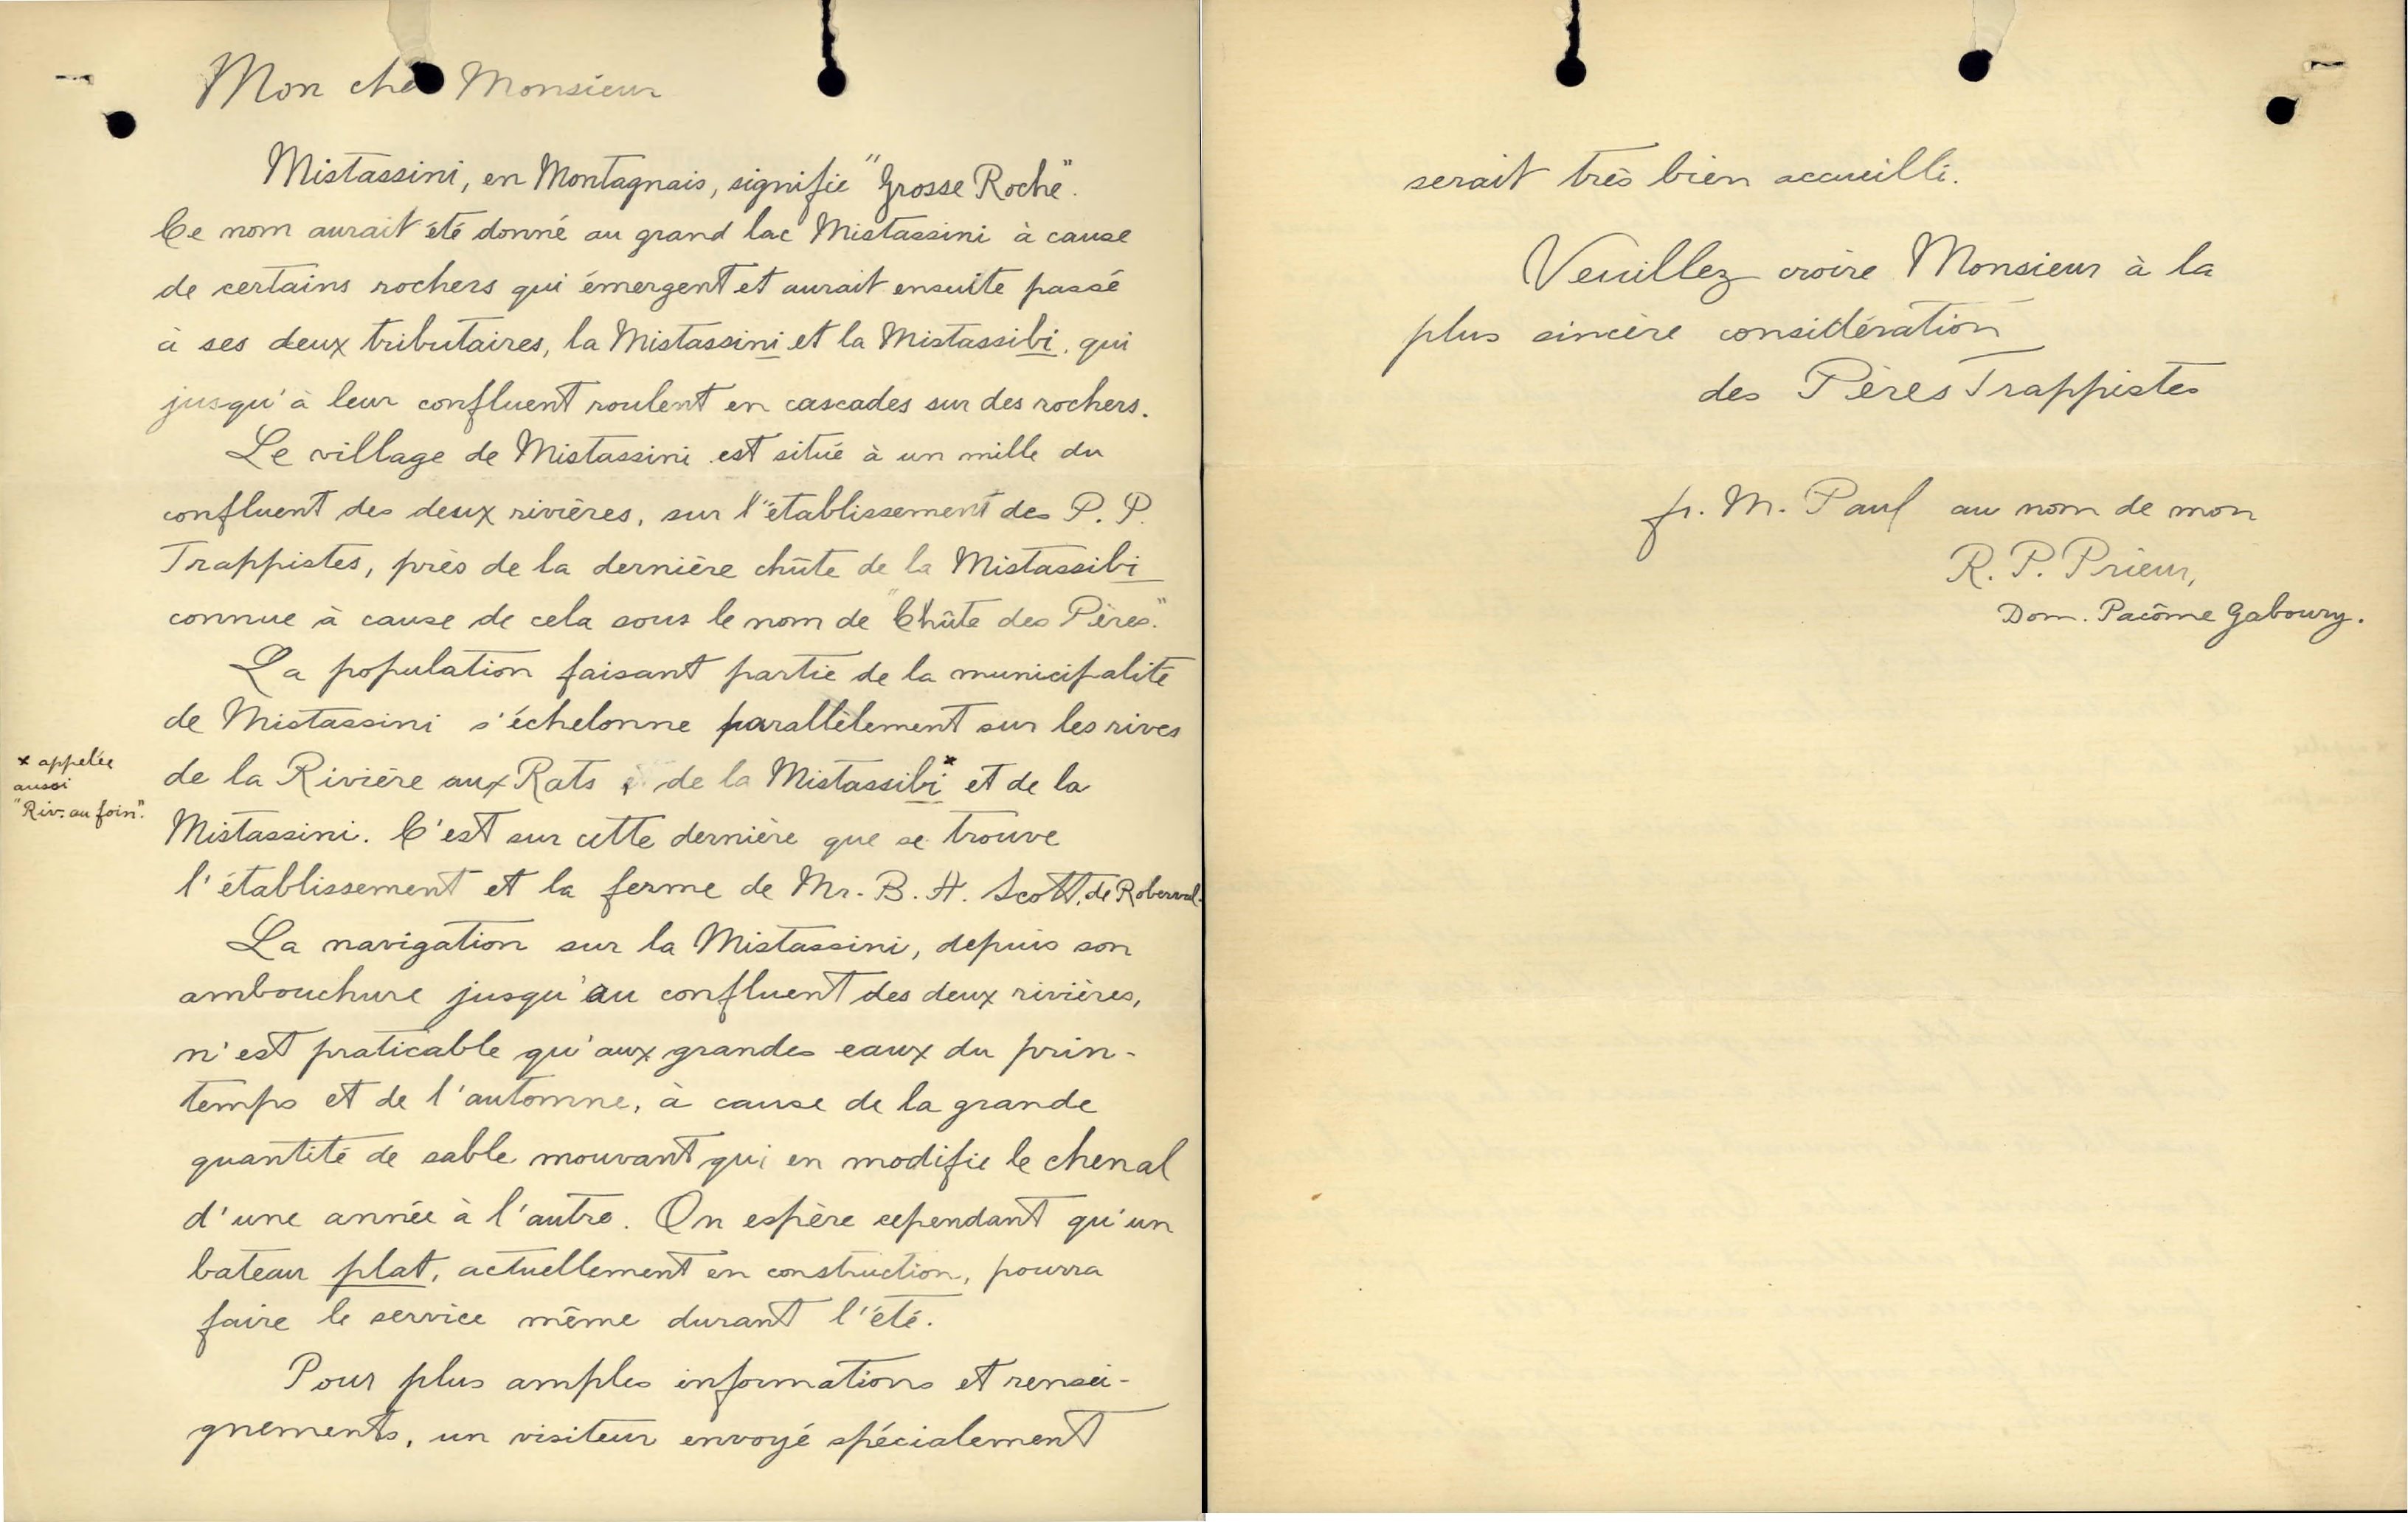 Mon che Monsieur
Mistassini, en Montagnais, signifie "Grosse Roche".
Ce nom aurait été donné au grand lac Mistassini à cause
de certains rochers qui émergent et aurait ensuite passé
à ses deux tributaires, la Mistassini et la Mistassibi, qui
jusqu'à leur confluent roulent en cascades sur des rochers.
Le village de Mistassini est situé à un mille du
confluent des deux rivières, sur l'établissement des P. P.
Trappistes, près de la dernière chûte de la Mistassibi
connue à cause de cela sous le nom de "Chûte des Pères."
La population faisant partie de la municipalité
de Mistassini s'échelonne parallèlement sur les rives
de la Rivière aux Rats de la Mistassibi x et de la
x appelée
aussi
"Riv. au foin".
Mistassini. C'est sur cette dernière que se trouve
l'établissement et la ferme de Mr. B. A. Scott, de Roberval.
La navigation sur la Mistassini, depuis son
ambouchure jusqu'au confluent des deux rivières,
n'est praticable qu'aux grandes eaux du prin-
temps et de l'automne, à cause de la grande
quantité de sable mouvant qui en modifie le chenal
d'une année à l'autre. On espère cependant qu'un
bateau plat, actuellement en construction, pourra
faire le service même durant l'été.
Pour plus amples informations et rensei-
gnements, un visiteur envoyé spécialement
serait très bien accueilli.
Veuillez croire Monsieur à la
plus sincère considération
des Pères Trappistes
fr. M. Paul au nom de mon
R. P. Prieur,
Dom. Pacôme Gaboury.